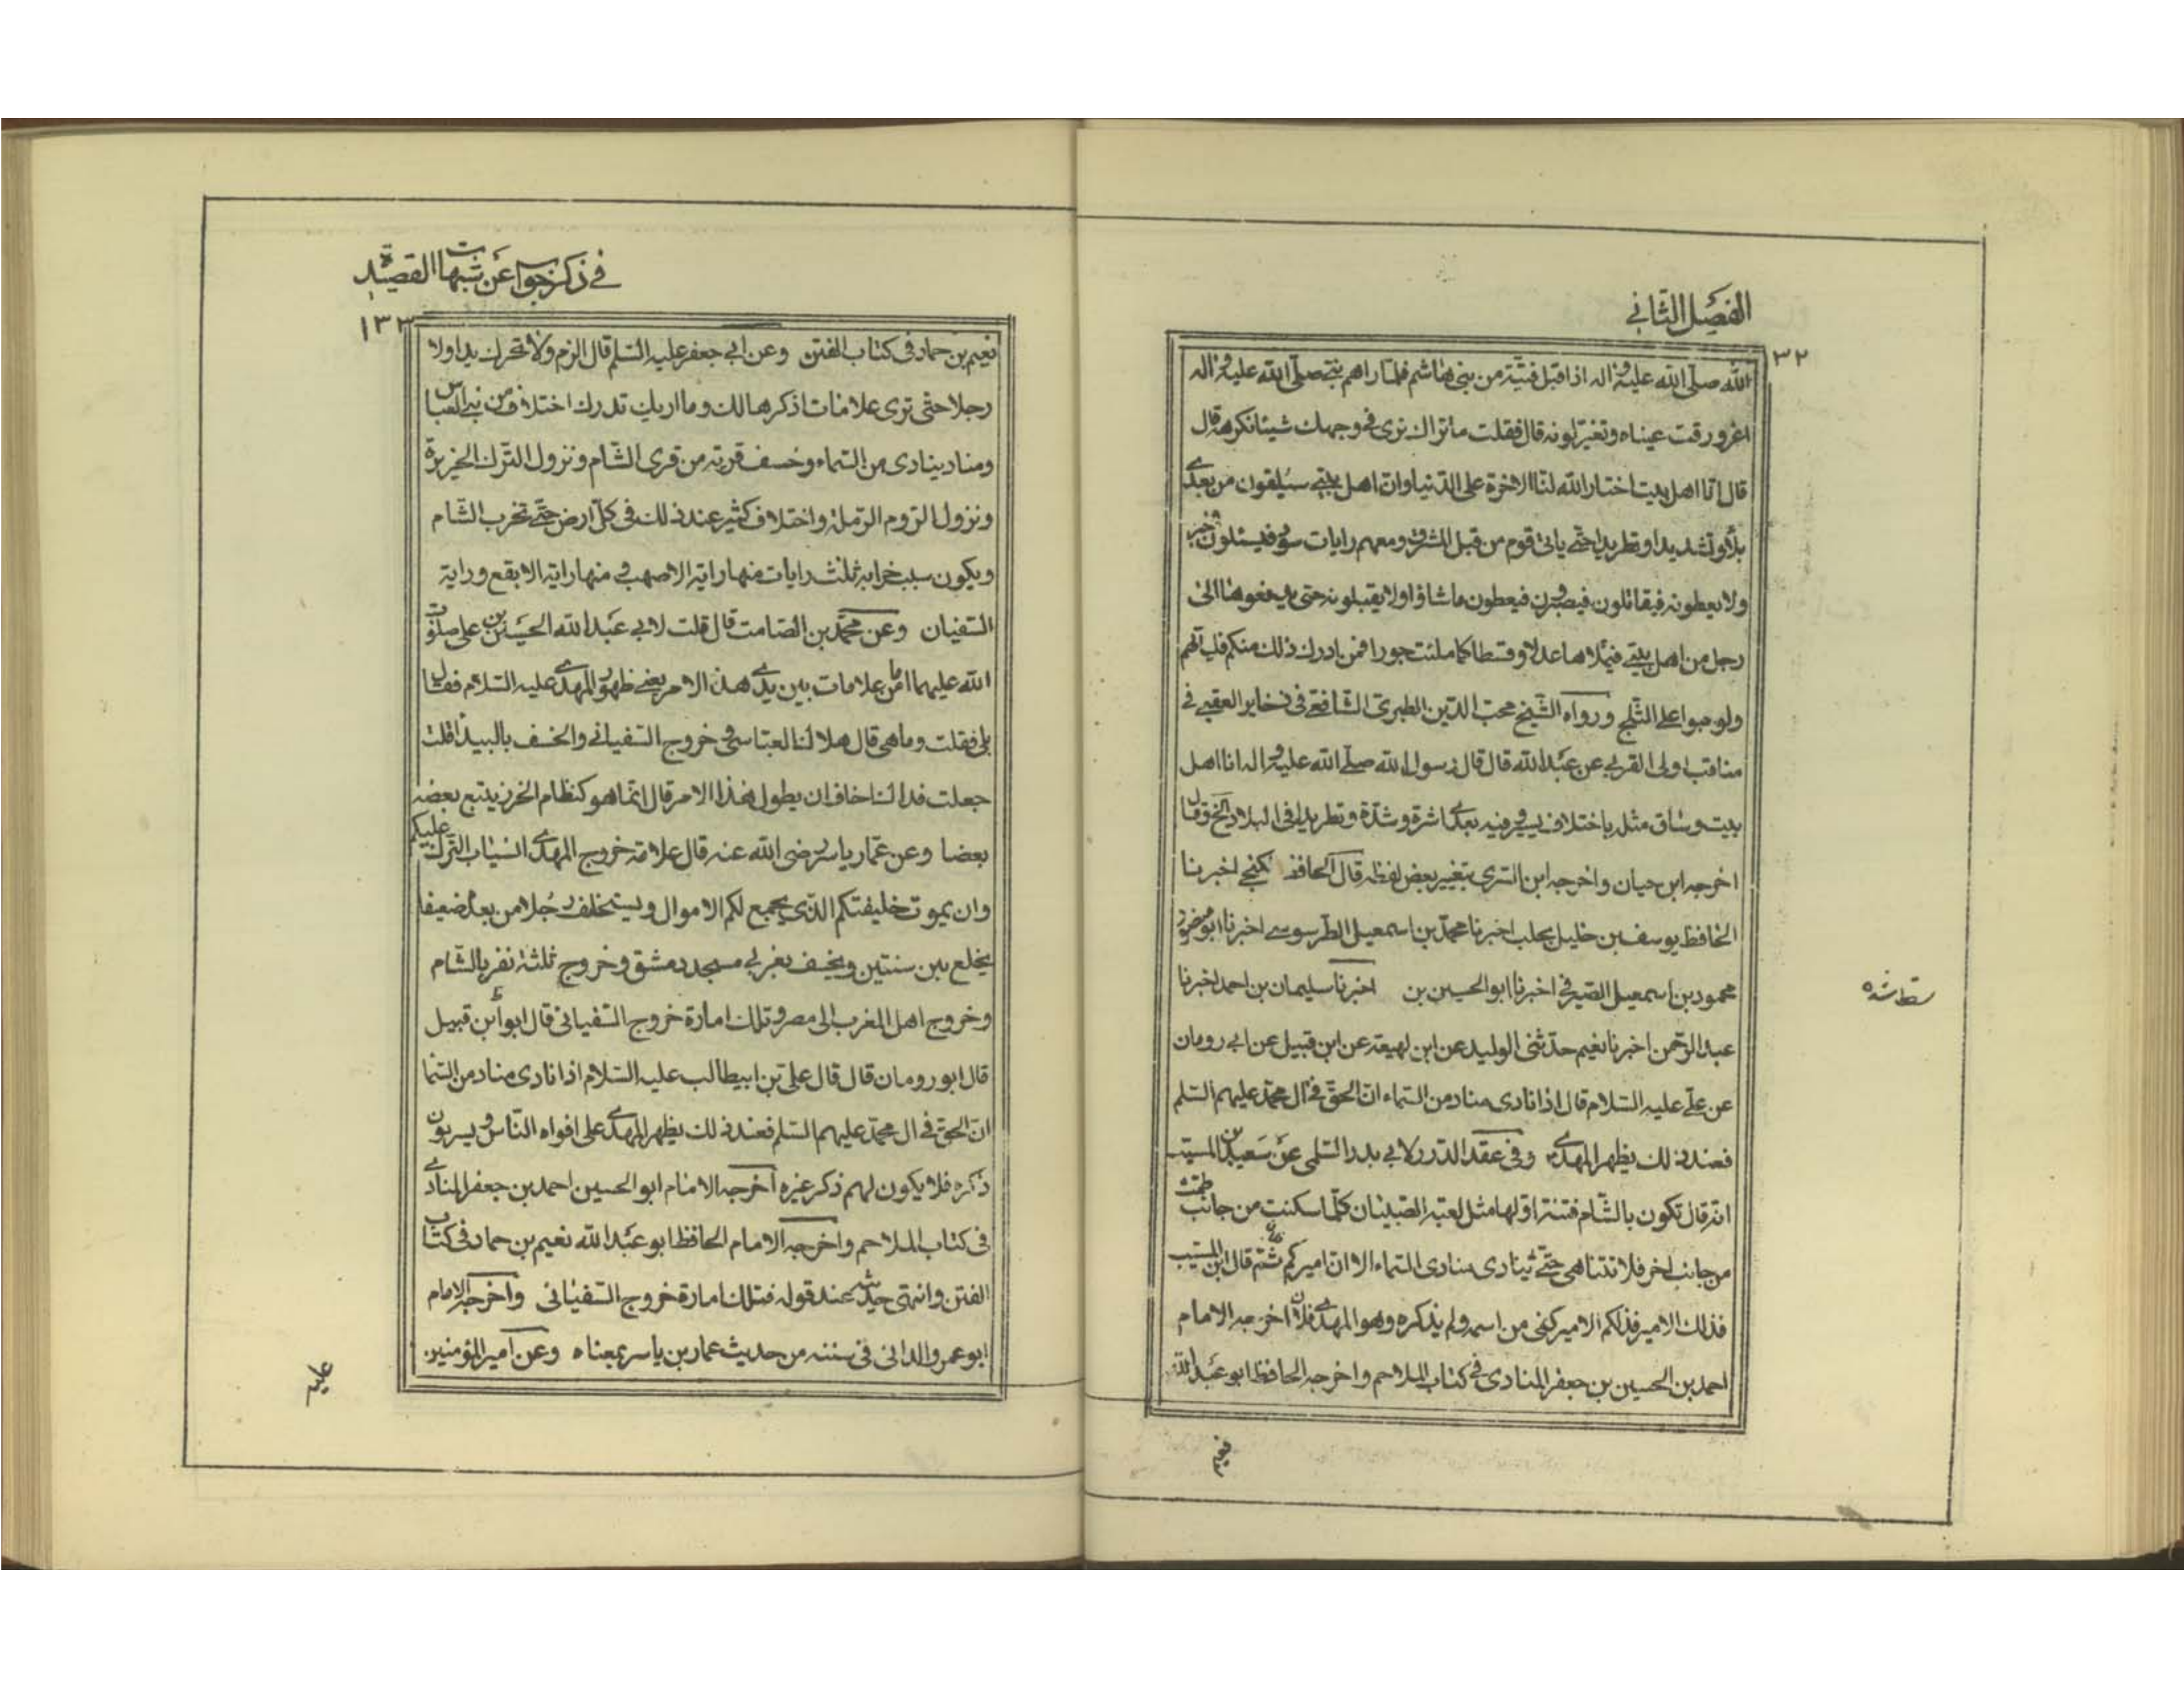 الفصل الثاني
٣٢
الله صلى الله عليه واله اذا قبل فتية من بني هاشم فلما راهم نبي صلى الله عليه واله
اغرورقت عيناه وتغير لونه قال فقلت ما نزال نرى في وجهك شيئا نكرهه قال
قال انا اهل بيت اختار الله لنا الاخرة على الدنيا وان اهل بيتي سيلقون من بعدي
بلاء وتشديدا وتطريدا حتى ياتي قوم من قبل المشرق ومعهم رايات سود فيسئلون خبر
ولا يعطونه فيقاتلون فيصبرون فيعطون ما شاؤا ولا يقبلونه حتى يدفعوها الى
رجل من اهل بيتي فيملاها عدلا وقسطا كما ملئت جورا فمن ادرك ذلك منكم فلياتهم
ولو حبوا على الثلج ورواه الشيخ محب الدين الطبري الشافعي في ذخاير العقبى في
مناقب اولى القربى عن عبد الله قال قال رسول الله صلى الله عليه واله انا اهل
بيت وساق مثله باختلاف يسير فيه بعدي اثرة وشدة وتطريدا في البلاد الخ وقال
اخرجه ابن حيان واخرجه ابن السري بتغيير بعض لفظه قال الحافظ كنجي اخبرنا
الحافظ يوسف بن خليل بحلب اخبرنا محمد بن اسمعيل الطرسوسي اخبرنا ابو منصور
محمود بن اسمعيل الصيرفي اخبرنا ابو الحسين بن اخبرنا سليمان بن احمد اخبرنا
سقط شده
عبد الرحمن اخبرنا نعيم حدثني الوليد عن ابن لهيعة عن ابن قبيل عن ابي رومان
عن علي عليه السلام قال اذا نادى مناد من السماء ان الحق في ال محمد عليهم السلم
فعند ذلك يظهر المهدي وفي عقد الدرر لابي بدر السلمي عن سعيد بن المسيب
انه قال تكون بالشام فتنة اولها مثل لعبة الصبيان كلما سكنت من جانب طمت
من جانب اخر فلا تتناهى حتى ينادى منادى السماء الا ان اميركم ثم قال ابن المسيب
فذلك الامير فذلكم الامير كنى من اسمه ولم يذكره وهو المهدي اخرجه الامام
احمد بن الحسين بن جعفر المنادى في كتاب الملاحم واخرجه الحافظ ابو عبد الله
نعيم
في ذكر جواب عن شبهات القصيدة
١٣٣
نعيم بن حماد في كتاب الفتن وعن ابي جعفر عليه السلم قال الزم ولا تحرك يدا ولا
رجلا حتى ترى علامات اذكرها لك وما اريك تدرك اختلاف من بني العباس
ومناد ينادى من السماء وخسف قرية من قرى الشام ونزول الترك الجزيرة
ونزول الروم الرملة واختلاف كثير عند ذلك في كل ارض حتى تخرب الشام
ويكون سبب خرابه ثلث رايات منها راية الاصهب و منها راية الابقع وراية
السفيان وعن محمد بن الصامت قال قلت لابي عبد الله الحسين بن علي صلوات
الله عليهما اما من علامات بين يدي هذا الامر يعني ظهور المهدي عليه السلام فقال
بلى فقلت وما هي قال هلاك العباسي و خروج السفياني والخسف بالبيداء قلت
جعلت فداك اخاف ان يطول هذا الامر قال انما هو كنظام الخرز يتبع بعضه
بعضا وعن عمار ياسر رضى الله عنه قال علامة خروج المهدي انسياب الترك عليكم
وان يموت خليفتكم الذي يجمع لكم الاموال ويستخلف رجلا من بعده ضعيفا
يخلع بين سنتين ويخسف بغربي مسجد دمشق وخروج ثلثة نفر بالشام
وخروج اهل المغرب الى مصر وتلك امارة خروج السفياني قال ابو ابن قبيل
قال ابو رومان قال قال علي بن ابيطالب عليه السلام اذا نادى مناد من السما
ان الحق في ال محمد عليهم السلم فعند ذلك يظهر المهدي على افواه الناس ويسربون
ذكره فلا يكون لهم ذكر غيره اخرجه الامام ابو الحسين احمد بن جعفر المنادي
في كتاب الملاحم واخرجه الامام الحافظ ابو عبد الله نعيم بن حماد في كتاب
الفتن وانتهى حديثه عند قوله فتلك امارة خروج السفياني واخرجه الامام
ابو عمرو الداني في سننه من حديث عمار بن ياسر بمعناه وعن امير المؤمنين
عليه